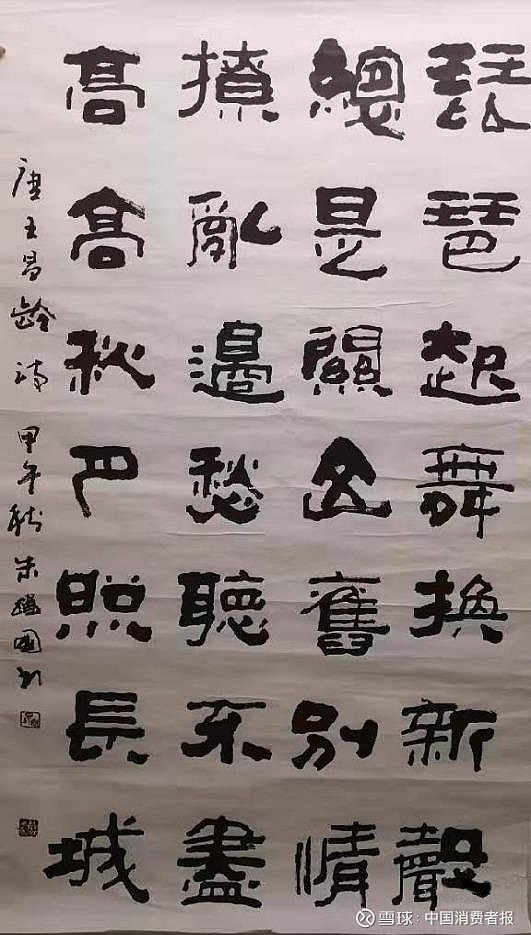 琵琶起舞換新聲
總是關山舊別情
撩亂邊愁聽不盡
高高秋月照長城
唐王昌齡詩 甲午秋 朱
雪球：中国消费者报